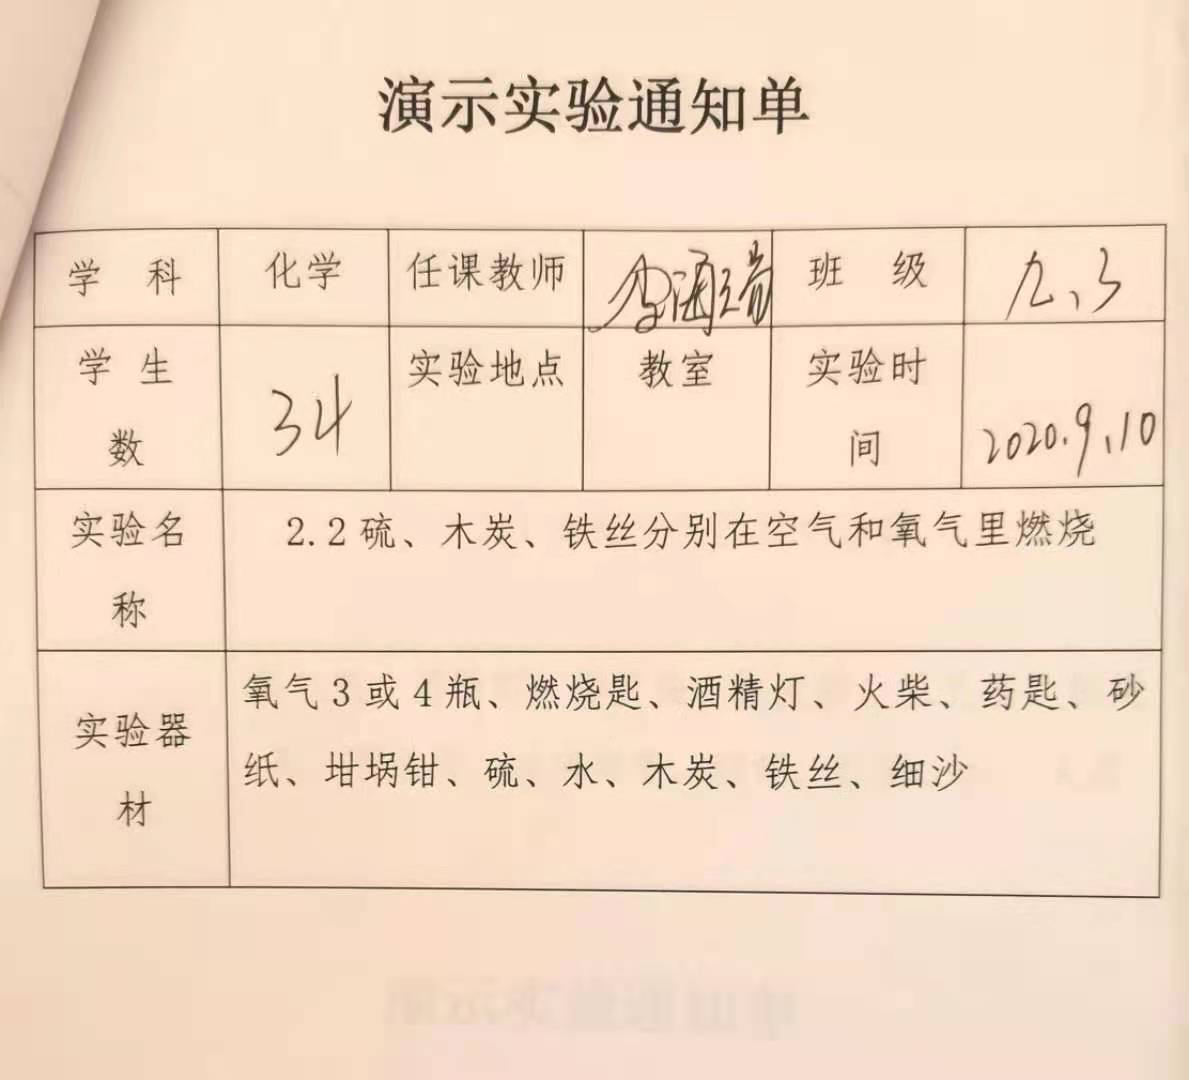 演示实验通知单
学 科 化学 任课教师 班 级 九、3
学 生 数 34 实验地点 教室 实验时间 2020.9.10
实验名称 2.2硫、木炭、铁丝分别在空气和氧气里燃烧
实验器材 氧气3或4瓶、燃烧匙、酒精灯、火柴、药匙、砂
纸、坩埚钳、硫、水、木炭、铁丝、细沙